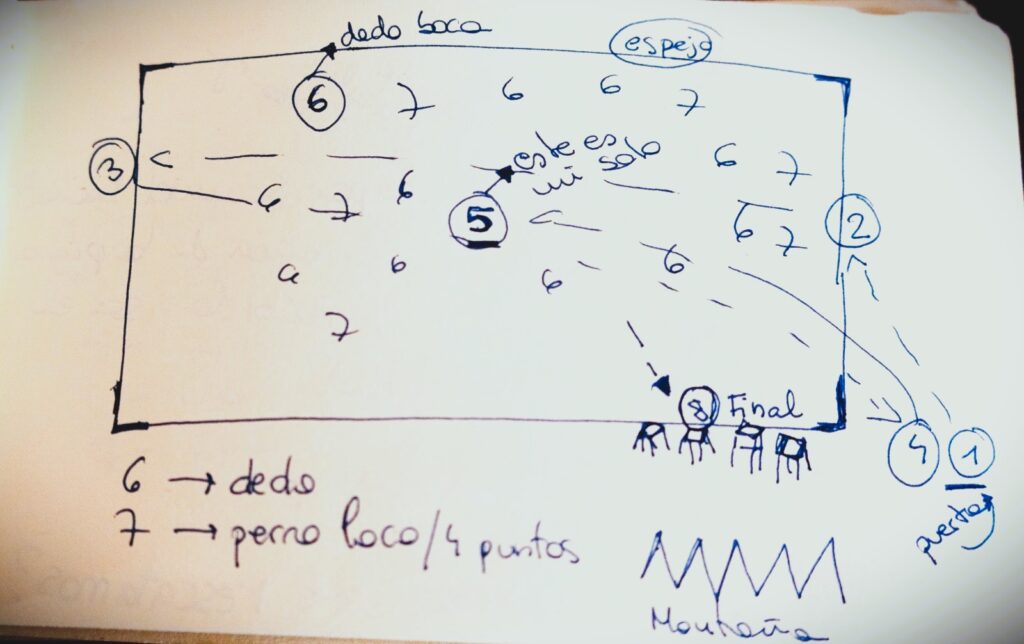 dedo boca
espejo
6 7 6 6 7
3
este es
mi solo
6 7
6 7 6
5
6 7
2
6 6 6
7
8 Final
4 1
puerta
6 → dedo
7 → perro loco/4 puntos
Montaña